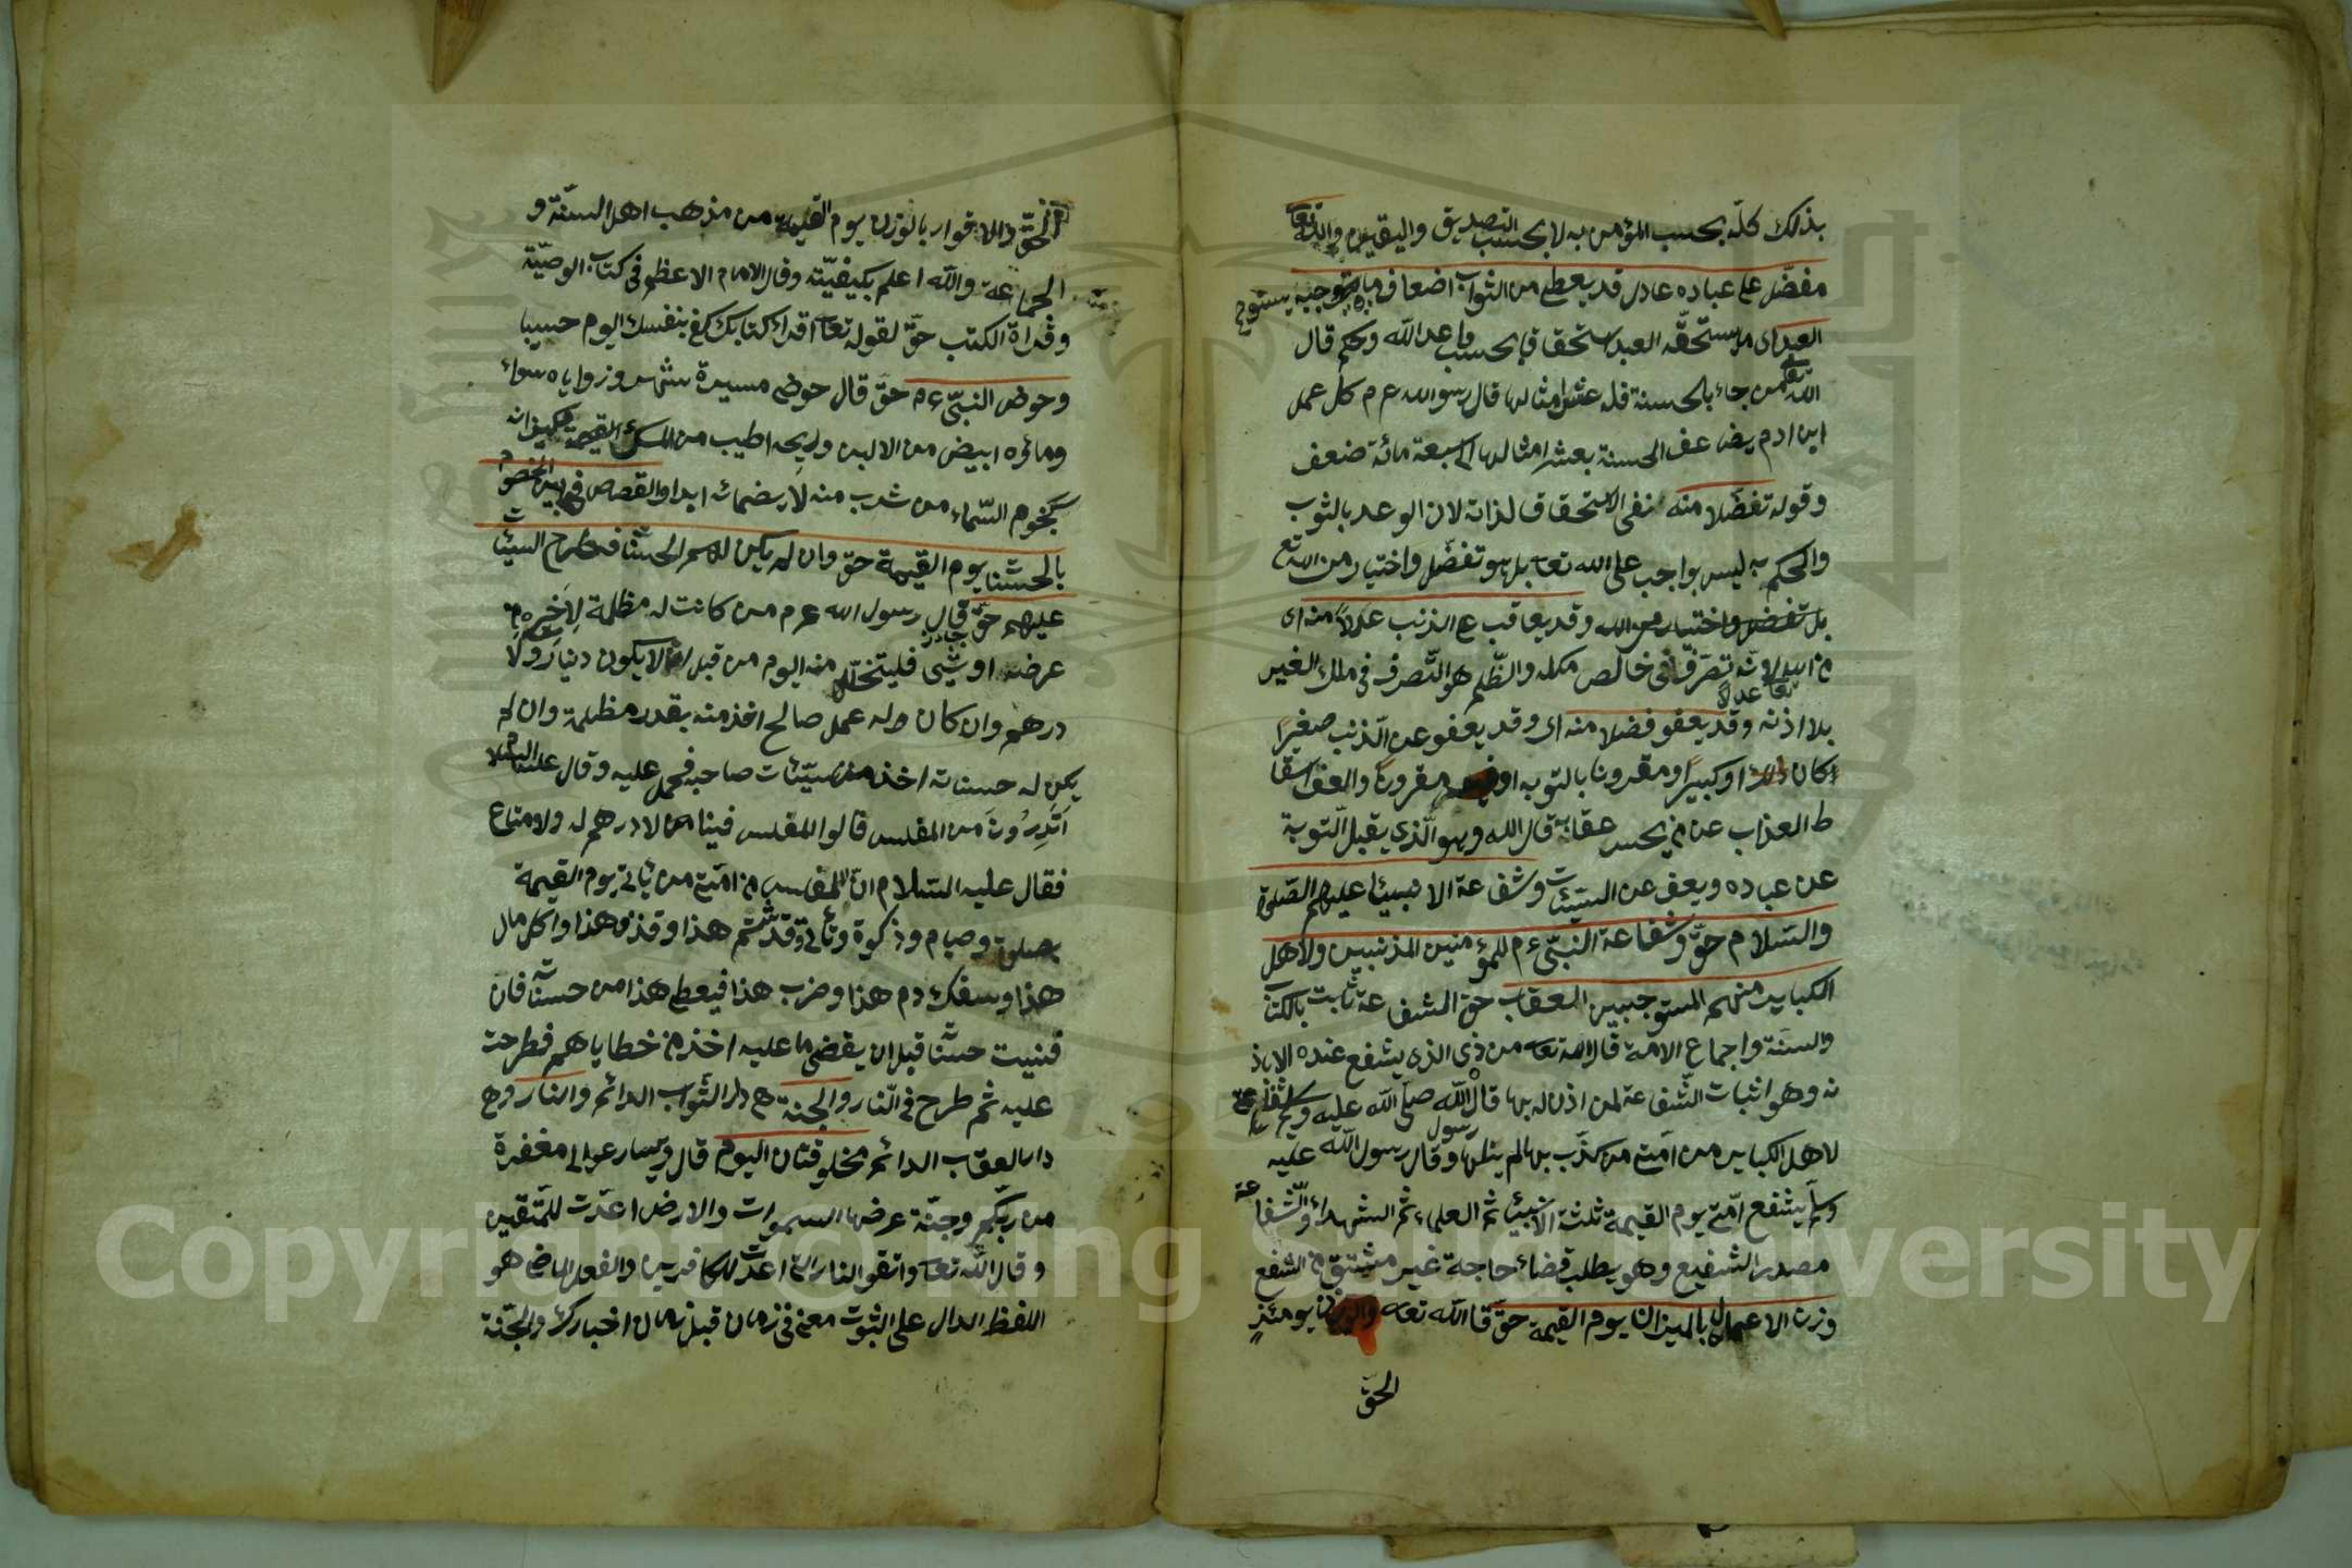 بذلك كلّه بحسب المؤمن به لا بحسب التصديق واليقين والله تعا
مفضّل على عباده عادل قد يعطى من الثواب اضعاف ما يستوجبه
العبد اى ما يستحقّه العبد استحقاقا بحسب وعد الله وحكم قال
الله تعا من جاء بالحسنة فله عشر امثالها قال رسول الله عم كل عمل
ابن ادم يضاعف الحسنة بعشر امثالها الى سبعة مائة ضعف
وقوله تفضّلا منه نفى الاستحقاق لذاته لان الوعد بالثوب
والحكم به ليس بواجب على الله تعا بل هو تفضّل واختيار من الله تع
بل تفضل واختيار من الله وقد يعاقب ع الذنب عدلا منه اى
تصرّفا فى خالص ملكه والظّلم هو التّصرف فى ملك الغير
بلا اذنه وقد يعفو فضلا منه اى وقد يعفو عن الذنب صغيرًا
كان ذلك او كبيرًا ومقرونا بالتوبه او مقرونا والعف اسقا
ط العذاب عن من يحسن عقابه قال الله وهو الّذى يقبل التّوبة
عن عباده ويعف عن السيّئت وشفاعة الانبيئا عليهم الصّلوة
والسّلام حقّ وشفاعة النبّى عم للمؤمنين المذنبين ولاهل
الكبائر منهم المستوجبين العقاب حق الشفاعة ثابت بالكتاب
والسنّة واجماع الامّة قال الله تعا من ذى الذى يشفع عنده الا باذ
نه وهو اثبات الشّفاعة لمن اذن له بها قال رسول الله صلّى الله عليه وسلم شفاعتى
لاهل الكبائر من امّتى من كذّب بها لم ينلها وقال رسول الله عليه
وسلّم يشفع امّتى يوم القيمة ثلثة الانبيئا ثم العلماء ثم الشهداء والشّفاعة
مصدر الشفيع وهو يطلب قضاء حاجة غير مشتق من الشفع
وزن الاعمال بالميزان يوم القيمة حقّ قا الله تعا والوزن يومئذٍ
الحقّ
الحقّ والاقرار بالوزن يوم القيمة من مذهب اهل السنّة و
الجماعة والله اعلم بكيفيّته وقال الامام الاعظم فى كتاب الوصيّة
وقراة الكتب حقّ لقوله تعا اقراء كتابك كفى بنفسك اليوم حسيبا
وحوض النبّى عم حقّ قال حوضى مسيرة شهر وزواياه سواء
ومائره ابيض من الالبن وريحه اطيب من المسك القيمة كيزانه
كنجوم السّماء من شرب منه لا يضمائ ابدا والقصاص فى بين الخصوم
بالحسنات يوم القيمة حق وان لم يكن لهم الحسنات فطرح السيئات
عليهم حقّ قال رسول الله عم من كانت له مظلمة لاخيه من
عرضه او شيئ فليتحلّله منه اليوم من قبل ان لا يكون دينار ولا
درهم وان كان له عمل صالح اخذ منه بقدر مظلمة وان لم
يكن له حسناته اخذ من سيّئات صاحبه فحمل عليه وقال عليه السّلام
اتدرُون من المفلس قالوا المفلس فينا من لا درهم له ولا متاع
فقال عليه السّلام انّ المفلس من امّتى من يأتى يوم القيمة
بصلوة وصيام وذكوة ويأتى وقد شتم هذا وقذف هذا واكل مال
هذا وسفك دم هذا وضرب هذا فيعطى هذا من حسناته فان
فنيت حسناته قبل ان يقضى ما عليه اخذ من خطاياهم فطرحت
عليه ثم طرح فى النّار والجنة هى دار الثّواب الدائم والنار وهى
دار العقاب الدائم مخلوقتان اليوم قال وسارعوا الى مغفرة
من ربّكم وجنّة عرضها السموات والارض اعدّت للمتّقين
وقال الله تعا واتقوا النار التى اعدّت للكافرين والفعل الماضى هو
اللفظ الدال على الثبوت معنى فى زمان قبل زمان اخبارك والجنّة